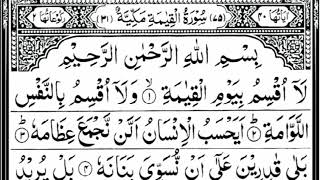 اٰيَاتُهَا ٤٠ (٧٥) سُوْرَةُ الْقِيٰمَةِ مَكِّيَّةٌ (٣١) رُكُوْعَاتُهَا ٢
بِسْمِ اللّٰهِ الرَّحْمٰنِ الرَّحِيْمِ
لَآ اُقْسِمُ بِيَوْمِ الْقِيٰمَةِ ۙ ﴿١﴾ وَلَآ اُقْسِمُ بِالنَّفْسِ
اللَّوَّامَةِ ﴿٢﴾ اَيَحْسَبُ الْاِنْسَانُ اَلَّنْ نَّجْمَعَ عِظَامَهٗ ﴿٣﴾
بَلٰى قٰدِرِيْنَ عَلٰٓى اَنْ نُّسَوِّيَ بَنَانَهٗ ﴿٤﴾ بَلْ يُرِيْدُ